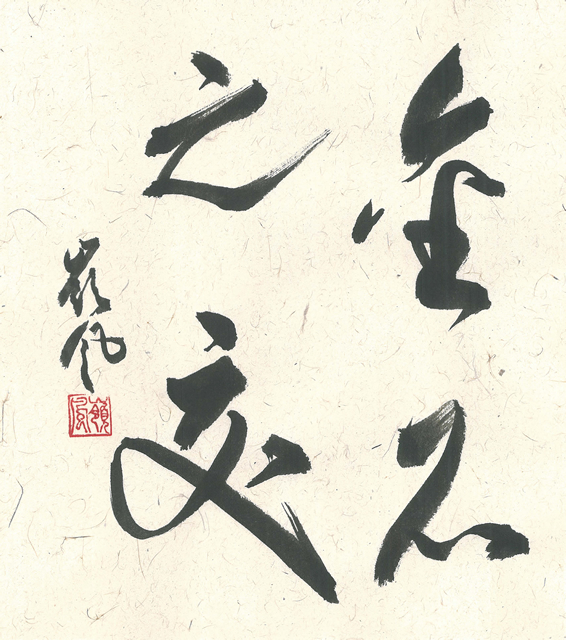 金石
之交
嶺風
嶺風